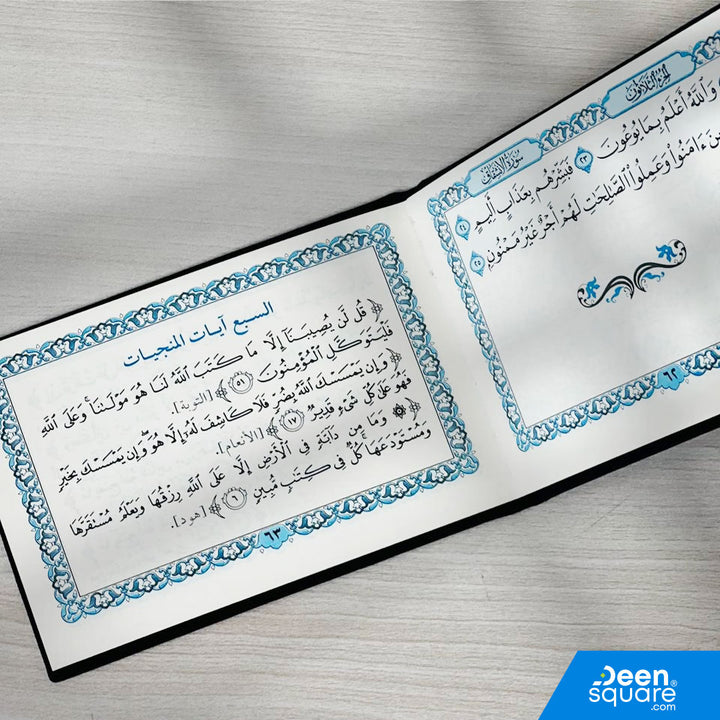 الجزء الثلاثون
سورة الانشقاق
وَٱللَّهُ أَعْلَمُ بِمَا يُوعُونَ ٢٣ فَبَشِّرْهُم بِعَذَابٍ أَلِيمٍ ٢٤
ءَامَنُوا۟ وَعَمِلُوا۟ ٱلصَّـٰلِحَـٰتِ لَهُمْ أَجْرٌ غَيْرُ مَمْنُونٍ ٢٥
٦٢
السبع آيات المنجيات
﴿قُل لَّن يُصِيبَنَآ إِلَّا مَا كَتَبَ ٱللَّهُ لَنَا هُوَ مَوْلَىٰنَا ۚ وَعَلَى ٱللَّهِ
فَلْيَتَوَكَّلِ ٱلْمُؤْمِنُونَ ٥١﴾ [التوبة].
﴿وَإِن يَمْسَسْكَ ٱللَّهُ بِضُرٍّ فَلَا كَاشِفَ لَهُۥٓ إِلَّا هُوَ ۖ وَإِن يَمْسَسْكَ بِخَيْرٍ
فَهُوَ عَلَىٰ كُلِّ شَىْءٍ قَدِيرٌ ١٧﴾ [الأنعام].
﴿۞ وَمَا مِن دَآبَّةٍ فِى ٱلْأَرْضِ إِلَّا عَلَى ٱللَّهِ رِزْقُهَا وَيَعْلَمُ مُسْتَقَرَّهَا
وَمُسْتَوْدَعَهَا ۚ كُلٌّ فِى كِتَـٰبٍ مُّبِينٍ ٦﴾ [هود].
٦٣
Deen
square®
.com